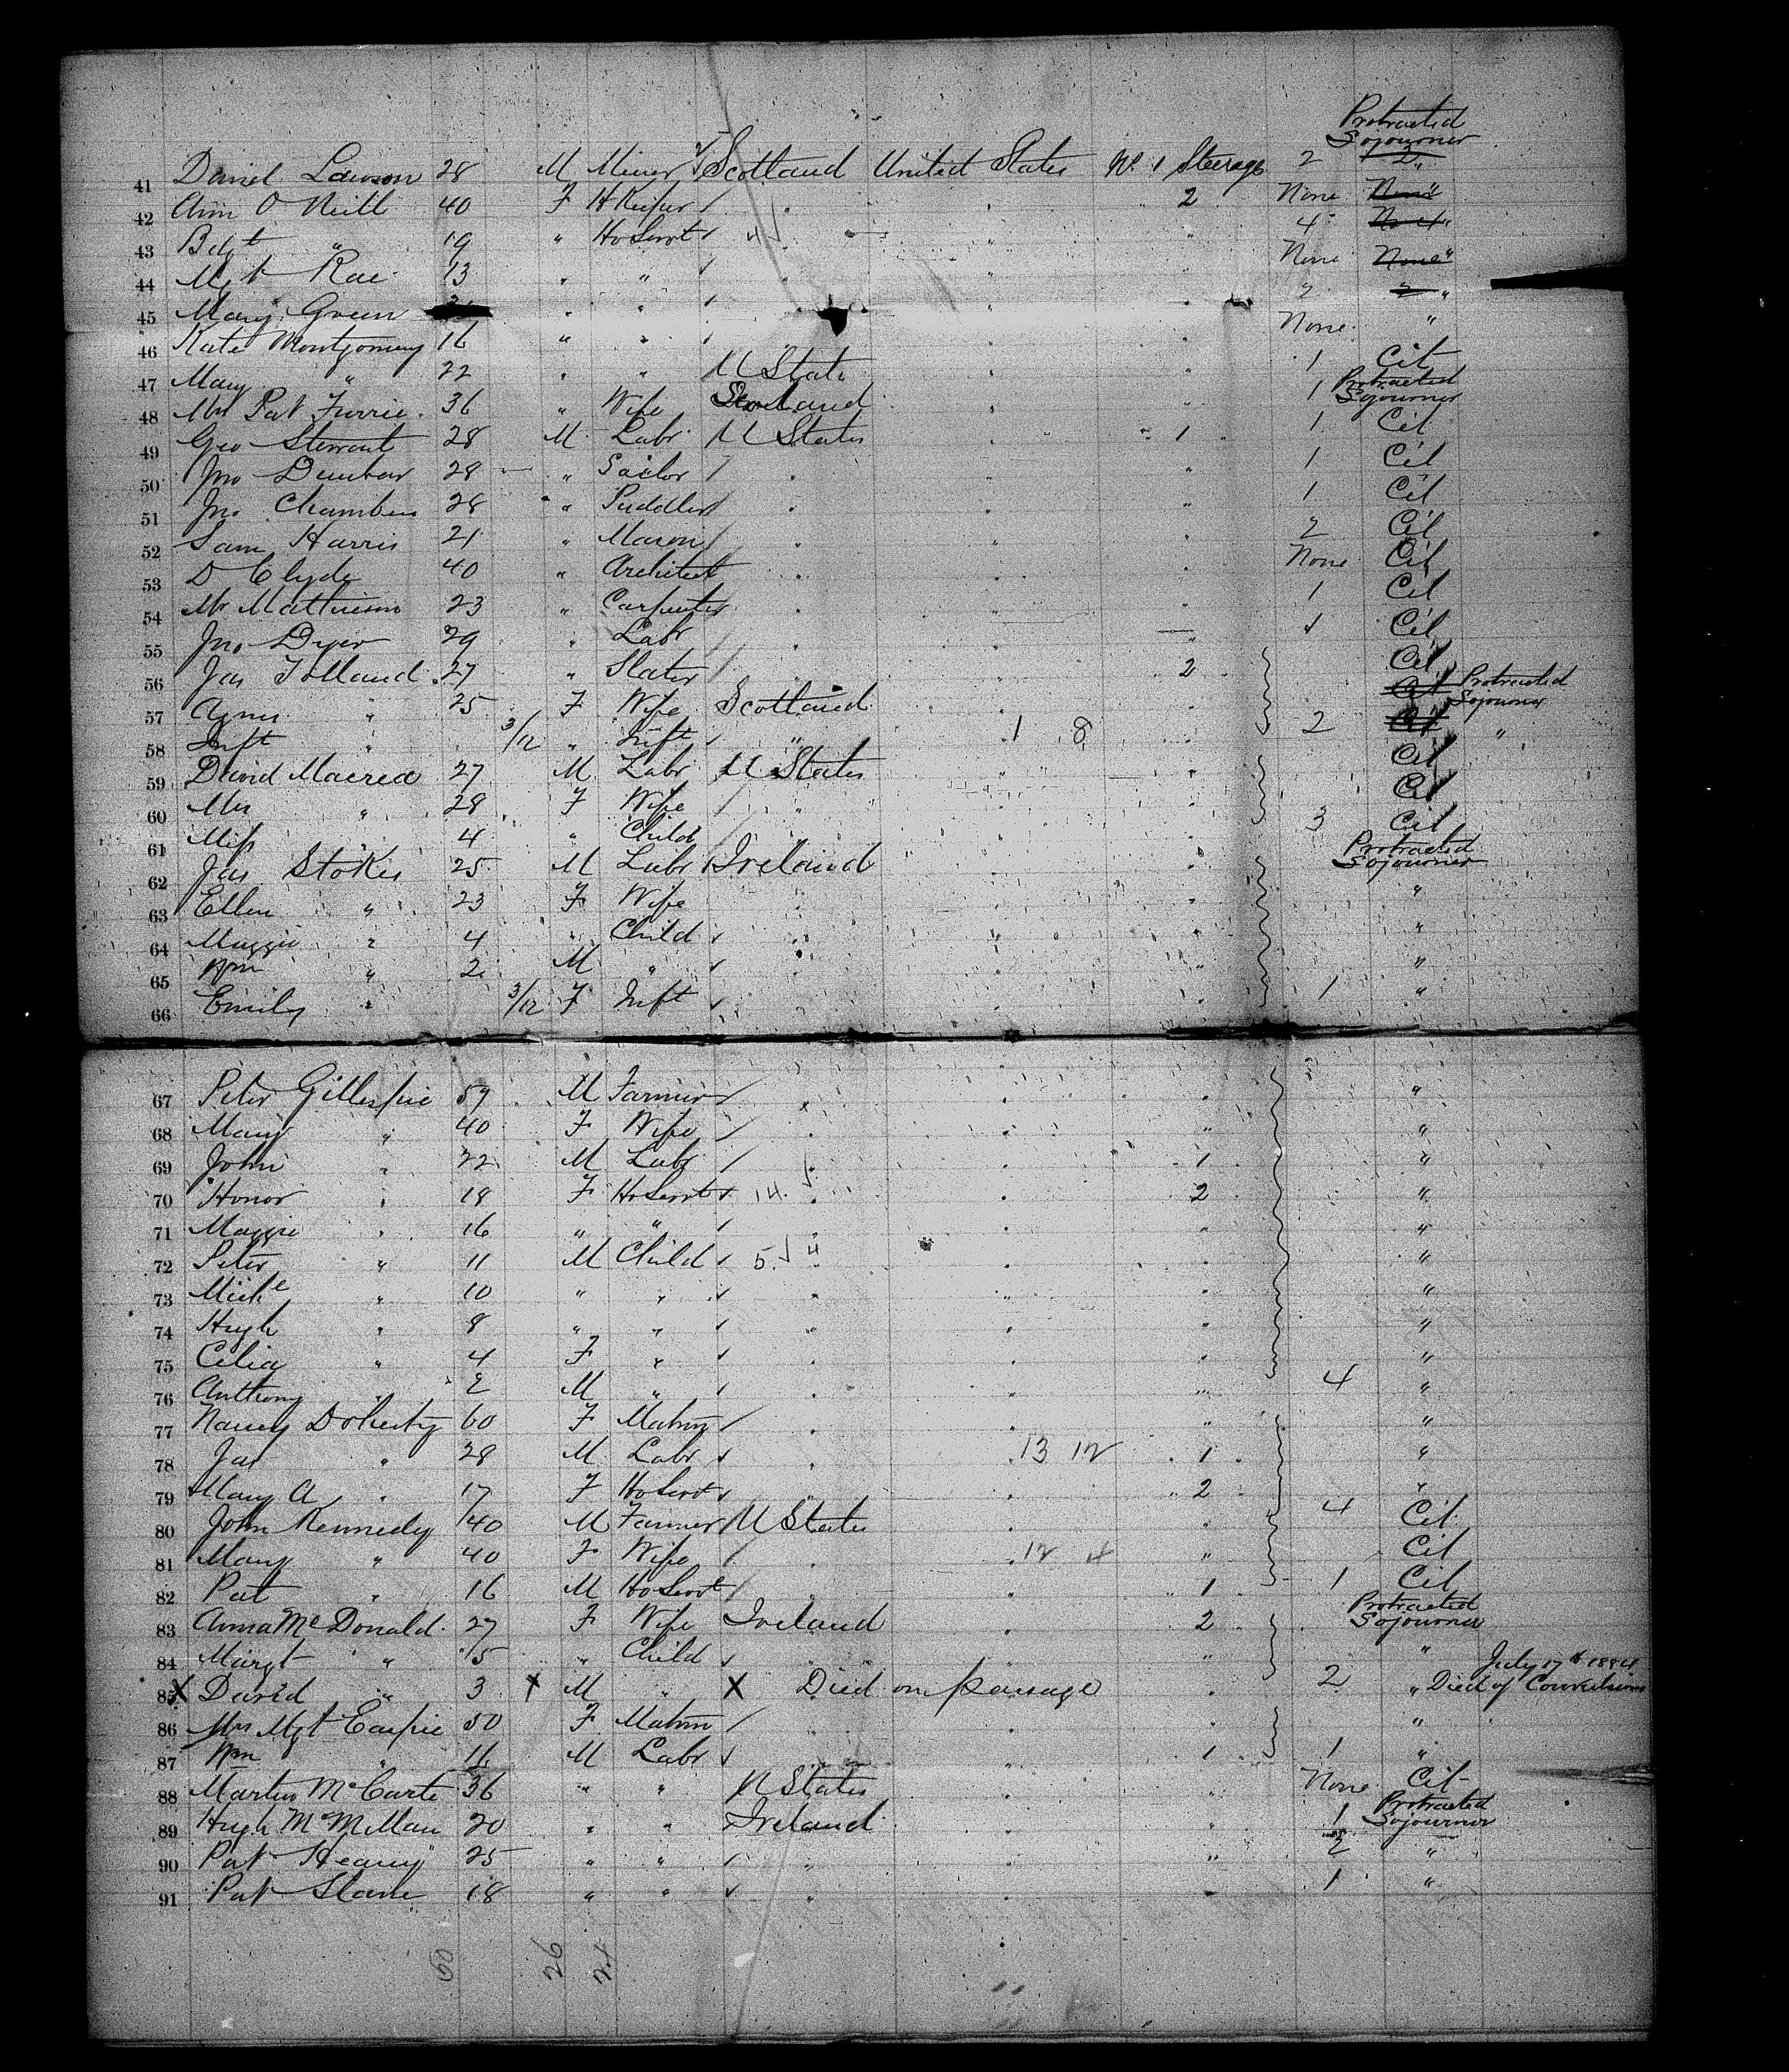 Protracted
Sojourner
41 David Lawson 28 M Miner Scotland United States No. 1 Steerage 2
42 Ann O Neill 40 F HKeeper " " 2 None
43 " 19 " HoServt " " " 4
44 Mgt Rae 13 " " " " " None
45 Mary Green " " " " " 2 "
46 Kate Montgomery 16 " " " " " None "
47 Mary " 22 " " U States " " 1 Cit
48 Mrs Pat Furrie 36 " Wife Scotland " " 1 Protracted Sojourner
49 Geo Stewart 28 M Labr U States " 1 1 Cit
50 Jno Dunbar 28 " Sailor " " " 1 Cit
51 Jno Chambers 28 " Puddler " " " 1 Cit
52 Sam Harris 21 " Mason " " " 2 Cit
53 D Clyde 40 " Architect " " " None Cit
54 Mr Mathieson 23 " Carpenter " " " 1 Cit
55 Jno Dyer 29 " Labr " " " 1 Cit
56 Jas Tolland 27 " Slater " " 2 Cit
57 Agnes " 25 F Wife Scotland " " Protracted Sojourner
58 Inft " 3/12 " Inft " 1 8 " 2 "
59 David Macrea 27 M Labr U States " " Cit
60 Mrs " 28 F Wife " " " Cit
61 Miss 4 " Child " " " 3 Cit
62 Jas Stokes 25 M Labr Ireland " " Protracted Sojourner
63 Ellen " 23 F Wife " " " "
64 Maggie " 4 " Child " " " "
65 Wm " 2 M " " " " "
66 Emily " 3/12 F Inft " " " 1 "
67 Peter Gillespie 59 M Farmer " " " "
68 Mary " 40 F Wife " " " "
69 John " 22 M Labr " " 1 "
70 Honor " 18 F HoServt 14 " " 2 "
71 Maggie " 16 " " " " " "
72 Peter " 11 M Child 5 " " " "
73 Michl " 10 " " " " " "
74 Hugh " 8 " " " " " "
75 Celia " 4 F " " " " "
76 Anthony " 2 M " " " " 4 "
77 Nancy Doherty 60 F Matron " " " "
78 Jas " 28 M Labr " 13 12 1 "
79 Mary A " 17 F HoServt " " 2 4 "
80 John Kennedy 40 M Farmer U States " " Cit
81 Mary " 40 F Wife " 12 4 " Cit
82 Pat " 16 M HoServt " " 1 1 Cit
83 Anna McDonald 27 F Wife Ireland " 2 Protracted Sojourner
84 Margt " 5 " Child " " " "
July 17th 1884
85 X David " 3 X M " X Died on passage " 2 " Died of Convulsions
86 Mrs Mgt Earpie 50 F Matron " " " "
87 Wm " M Labr " " 1 1 "
88 Martin McCarte 36 " " U States " " None Cit
89 Hugh McMillan 20 " " Ireland " " 1 Protracted Sojourner
90 Pat Heany 25 " " " " " 2 "
91 Pat Slane 18 " " " " " 1 "
50 26 24